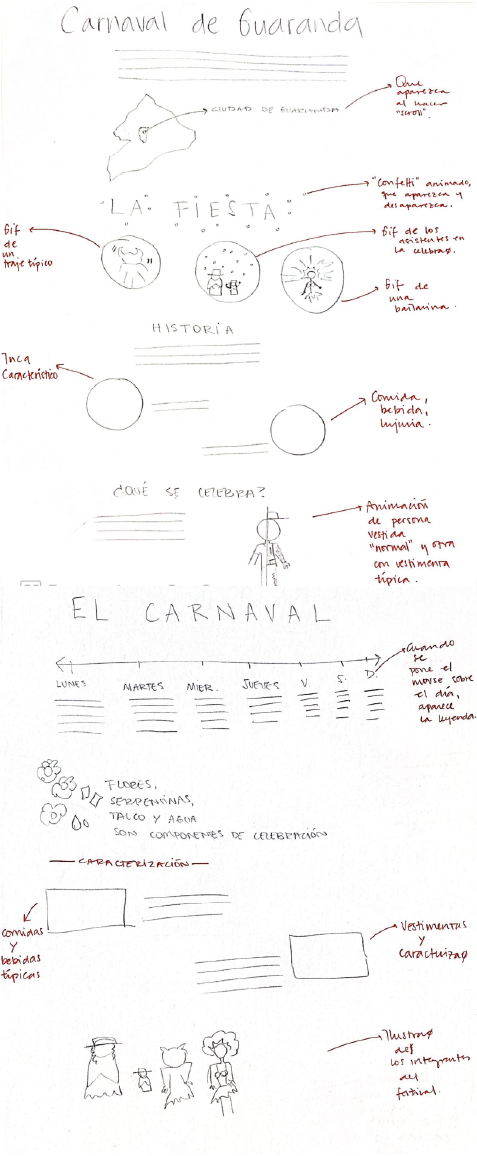 Carnaval de Guaranda
Que
aparezca
al hacer
"scroll".
CIUDAD DE GUARANDA
"confetti" animado,
que aparezca y
desaparezca.
LA FIESTA
Gif
de
un
traje típico
Gif de los
asistentes en
la celebraø.
Gif de
una
bailarina.
HISTORIA
Inca
Característico
Comida,
bebida,
lujuria.
¿QUÉ SE CELEBRA?
Animación
de persona
vestida
"normal" y otra
con vestimenta
típica.
EL CARNAVAL
Cuando
se
pone el
mouse sobre
el día,
aparece
la leyenda.
LUNES MARTES MIER. JUEVES V S. D.
FLORES,
SERPENTINAS,
TALCO Y AGUA
SON COMPONENTES DE CELEBRACIÓN
CARACTERIZACIÓN
Comidas
y
bebidas
típicas
Vestimentas
y
caracterizaø
Ilustraø
de
los integrantes
del
festival.